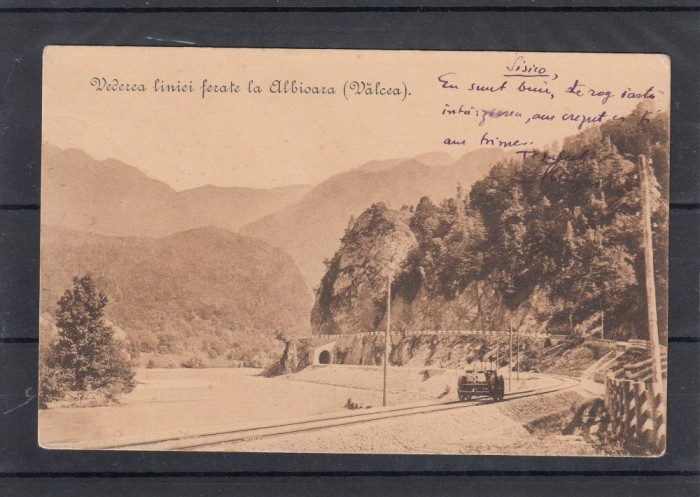 Vederea liniei ferate la Albioara (Vâlcea).
Sisiro,
Eu sunt bine, te rog iartă
întârzierea, am crezut că ți
am trimes.